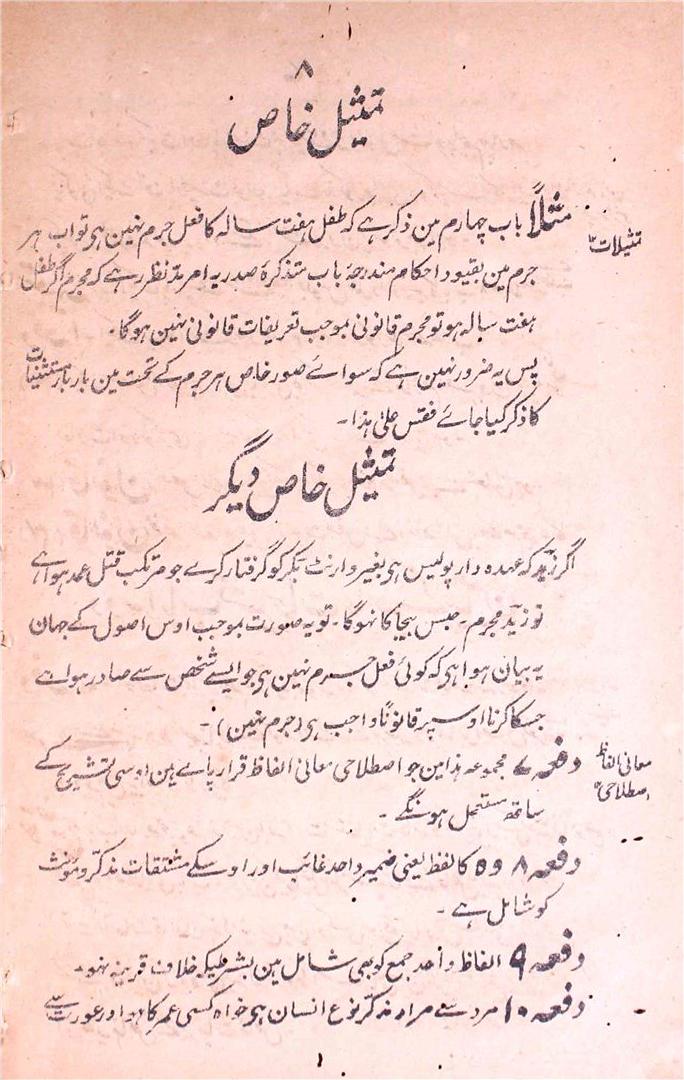 ۸
تمثیل خاص
تمثیلات
مثلاً باب چہارم مین ذکر ہے کہ طفل ہفت سالہ کا فعل جرم نہین ہی تو اب ہر
جرم مین بقیود احکام مندرجۂ باب متذکرۂ صدر یہ امر مدّ نظر رہے کہ مجرم اگر طفل
ہفت سالہ ہو تو مجرم قانونی بموجب تعریفات قانونی نہین ہوگا۔
پس یہ ضرور نہین ہے کہ سوائے صور خاص ہر جرم کے تحت مین بار بار مستثنیات
کا ذکر کیا جائے فقس علیٰ ہذا۔
تمثیل خاص دیگر
اگر زید کہ عہدہ دار پولیس ہی بغیر وارنٹ بکر کو گرفتار کرے جو مرتکب قتل عمد ہوا ہے
تو زید مجرم۔ حبس بیجا کا نہوگا۔ تو یہ صورت بموجب اوس اصول کے جہان
یہ بیان ہوا ہی کہ کوئی فعل جرم نہین ہی جو ایسے شخص سے صادر ہوا ہے
جسکا کرنا اوسپر قانوناً واجب ہی (جرم نہین)۔
معانی الفاظ
اصطلاحی
دفعہ ۷ مجموعہ ہذا مین جو اصطلاحی معانی الفاظ قرار پائے ہین اوسی تشریح کے
ساتھ مستعمل ہونگے۔
دفعہ ۸ وہ کا لفظ یعنی ضمیر واحد غائب اور اوسکے مشتقات مذکر و مونث
کو شامل ہے۔
دفعہ ۹ الفاظ واحد جمع کو بھی شامل ہین بشرطیکہ خلاف قرینہ نہو۔
دفعہ ۱۰ مرد سے مراد مذکر نوع انسان ہی خواہ کسی عمر کا ہو اور عورت سے